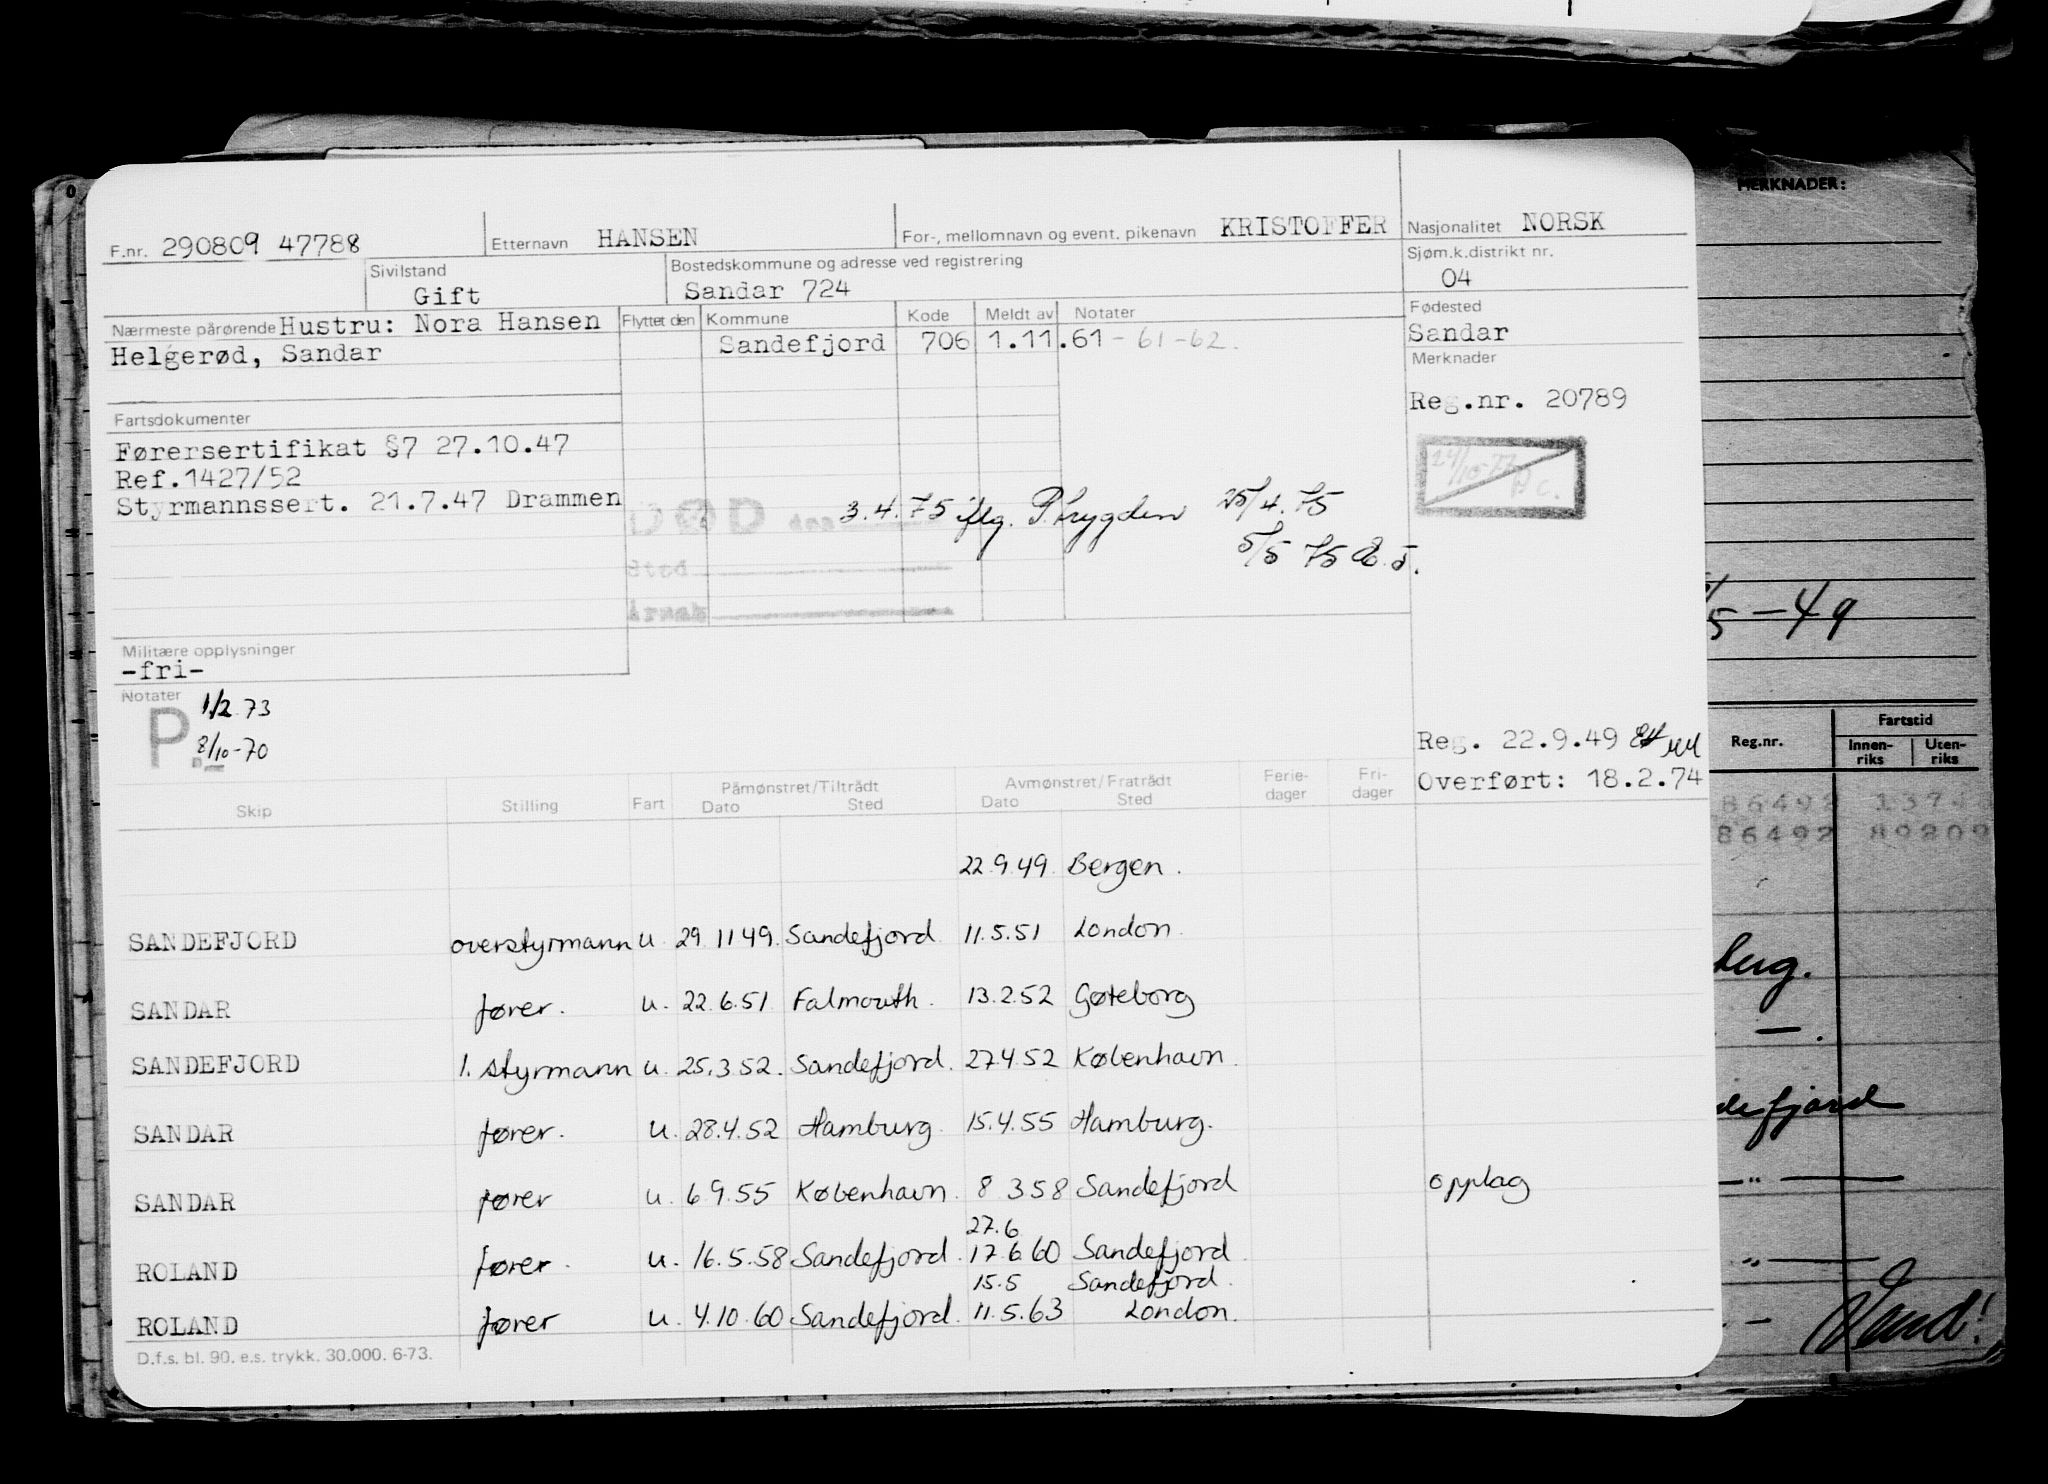 MERKNADER:
F.nr. 290809 47788 Etternavn HANSEN For-, mellomnavn og event. pikenavn KRISTOFFER Nasjonalitet NORSK
Sivilstand Gift Bostedskommune og adresse ved registrering Sandar 724 Sjøm.k.distrikt nr. 04
Nærmeste pårørende Hustru: Nora Hansen Flyttet den Kommune Kode Meldt av Notater Fødested
Helgerød, Sandar Sandefjord 706 1.11.61 - 61-62. Sandar
Merknader
Reg.nr. 20789
24/10-77
Fartsdokumenter
Førersertifikat §7 27.10.47
Ref.1427/52
Styrmannssert. 21.7.47 Drammen
DØD den 3.4.75 iflg. P.trygden 25/4.75
5/5 75
Sted
Årsak
5-49
Militære opplysninger
-fri-
Notater
P. 1/2 73
8/10-70
Reg. 22.9.49
Overført: 18.2.74
Reg.nr. Fartstid
Innen-riks Uten-riks
86492
86492 89209
Skip Stilling Fart Påmønstret/Tiltrådt Dato Sted Avmønstret/Fratrådt Dato Sted Ferie-dager Fri-dager
22.9.49. Bergen.
SANDEFJORD overstyrmann u. 29.11.49. Sandefjord 11.5.51 London.
SANDAR fører. u. 22.6.51. Falmouth. 13.2.52 Gøteborg
SANDEFJORD 1. styrmann u. 25.3.52. Sandefjord. 27.4.52 København.
SANDAR fører. u. 28.4.52 Hamburg. 15.4.55 Hamburg.
SANDAR fører u. 6.9.55 København. 8.3.58 Sandefjord opplag
27.6
ROLAND fører. u. 16.5.58 Sandefjord. 17.6.60 Sandefjord.
15.5 Sandefjord.
ROLAND fører u. 4.10.60 Sandefjord. 11.5.63 London.
D.f.s. bl. 90. e.s. trykk. 30.000. 6-73.